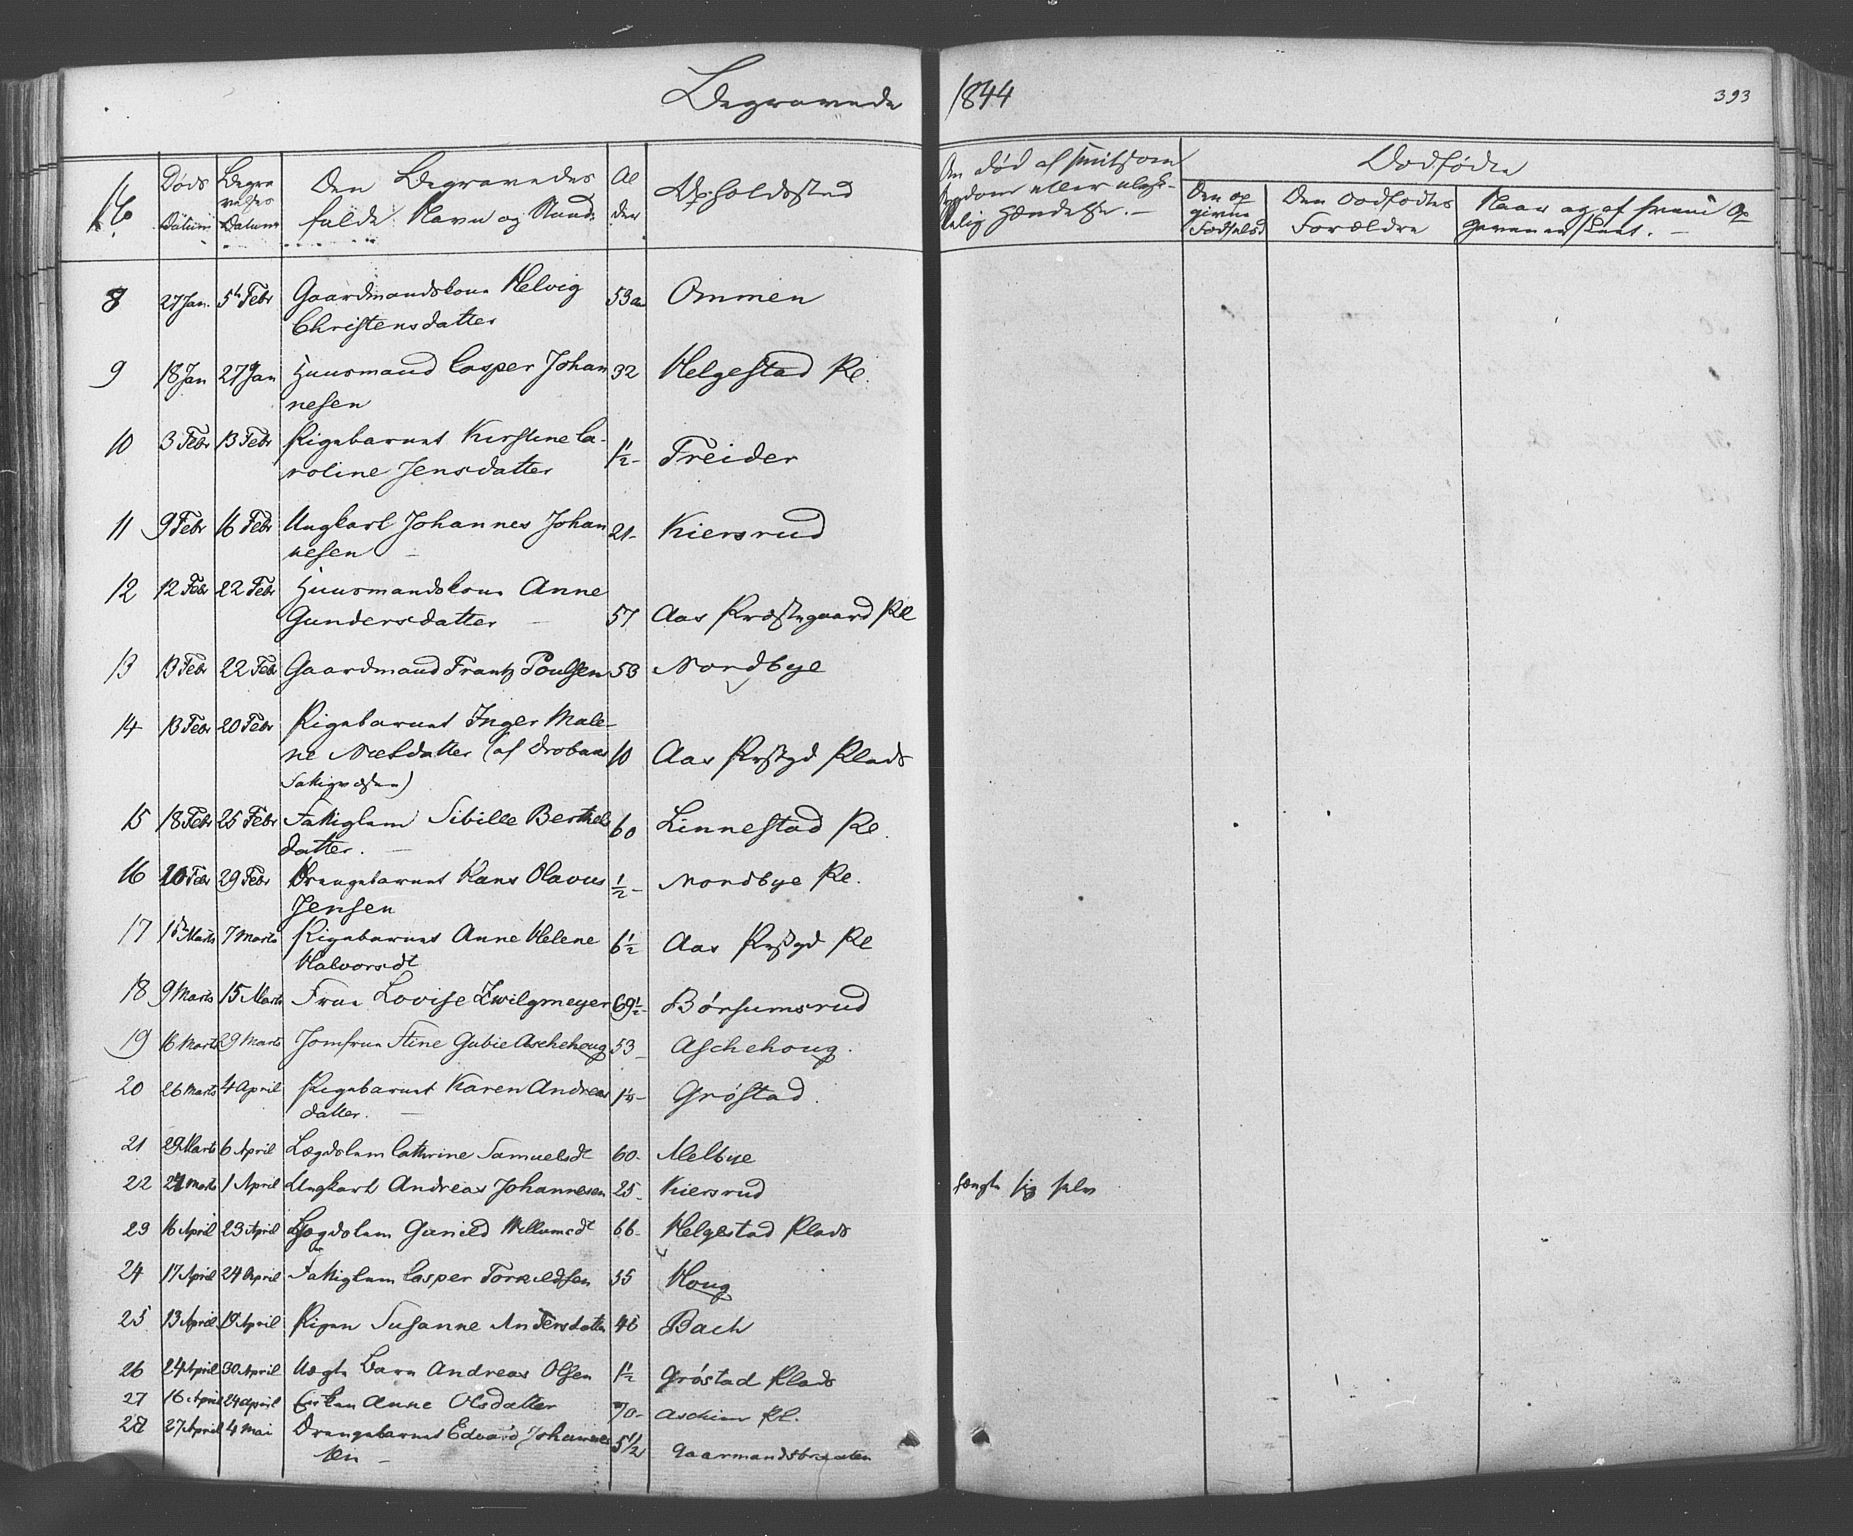 Begravede 1844
393
No
Døds Datum
Begravelses Datum
Den Begravedes fulde Navn og Stand.
Alder
Opholdssted
Om død af smitsom Sygdom eller ulykkelig Hændelse. —
Dødfødte
Den opgivne Fødselsd
Den Dodfødtes Forældre
Naar og af hvem Opgaven er skeet. —
8 27 Jan. 5te Febr Gaardmandskone Helvig 53 a Ommen
Christensdatter
9 18 Jan 27 Jan Huusmand Casper Johan 32 Helgestad Pl.
nesen
10 3 Febr 13 Febr Pigebarnet Kirstine Ca- 1½ - Freider
roline Jensdatter
11 9 Febr 16 Febr Ungkarl Johannes Johan 21 - Kiersrud
nesen —
12 12 Febr 22 Febr Huusmandskone Anne
Gundersdatter — 57 Aas Præstegaard Pl
13 13 Febr 22 Febr Gaardmand Frantz Poulsen 53 Nordbye
14 13 Febr 20 Febr Pigebarnet Inger Male-
ne Nielsdatter (af Drobaks 10 Aas Prstgd Plads
Fattigvæsen)
15 18 Febr 25 Febr Fattiglem Sibille Berthels 60 Linnestad Pl.
datter. —
16 20 Febr 29 Febr Drengebarnet Hans Olavus ½ - Nordbye Pl.
Jensen
17 1ste Marts 7 Marts Pigebarnet Anne Helene 6½ Aas Prstgd Pl
Halvorsdt
18 9 Marts 15 Marts Frue Lovise Zwilgmeyer 69½ - Børsumsrud
19 16 Marts 29 Marts Jomfrue Stine Gubie Aschehoug 53 - Aschehoug.
20 26 Marts 4 April Pigebarnet Karen Andreas 1½ - Grøstad.
datter. —
21 29 Marts 6 April Lægdslem Cathrine Samuelsdt 60 - Melbye
22 24 Marts 1 April Ungkarl Andreas Johannesen 25 - Kiersrud hængte sig selv
23 16 April 23 April Lægdslem Gunild Willumsdt 66 - Helgestad Plads
24 17 April 24 April Fattiglem Casper Torkildsen 55 Houg
25 13 April 19 April Pigen Susanne Andersdatter 46 Bach
26 24 April 30 April Uægte Barn Andreas Olsen 1½ Grøstad Plads
27 16 April 24 April Enken Anne Olsdatter 70 - Aschim Pl.
28 27 April 4 Mai Drengebarnet Edvard Johannes 5½ Gaarmandsbraaten
sen —